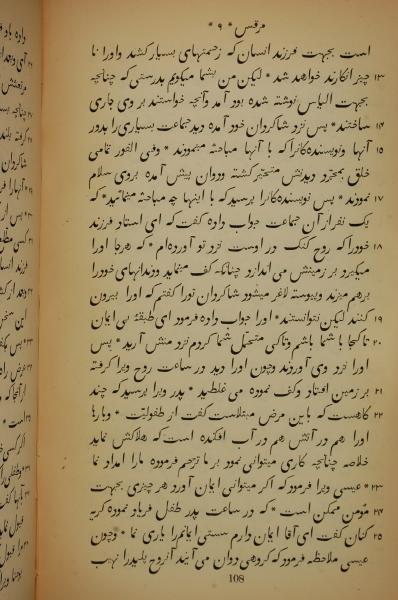 مرقس * ۹ *
است بجهت فرزند انسان که زحمتهای بسیار کشد واورا نا
۱۳ چیز انکارند خواهد شد * لیکن من بشما میکویم بدرستی که چنانچه
بجهت الیاس نوشته شده بود آمد وآنچه خواستند بر وی جاری
۱۴ ساختند * پس نزد شاکردان خود آمده دید جماعت بسیاری را بدور
۱۵ آنها ونویسنده‌کانرا که با آنها مباحثه مینمودند * وفی الفور تمامی
خلق بمجرد دیدنش متحیر کشته ودوان پیش آمده بروی سلام
۱۷ نمودند * پس نویسنده‌کانرا پرسید که با اینها چه مباحثه مینمائید * که
یک نفر از آن جماعت جواب داده کفت که ای استاد فرزند
۱۸ خودرا که روح کنک در اوست نزد تو آورده‌ام * که هرجا اورا
میکیرد بر زمینش می اندازد چنانکه کف مینماید ودندانهای خودرا
برهم میزند وپیوسته لاغر میشود شاکردان تورا کفتم که اورا بیرون
۱۹ کنند لیکن نتوانستند * اورا جواب داده فرمود ای طبقهٔ بی ایمان
۲۰ تا کجا با شما باشم وتا کی متحمل شما کردم نزد منش آرید * پس
اورا نزد وی آوردند وچون اورا دید در ساعت روح ویرا کرفته
۲۱ بر زمین افتاد وکف نموده می غلطید * پدر ویرا پرسید که چند
۲۲ کاهست که باین مرض مبتلاست کفت از طفولیّت * وبارها
اورا هم در آتش هم در آب افکنده است که هلاکش نماید
خلاصه چنانچه کاری میتوانی نمود بر ما ترحم فرموده مارا امداد نما
۲۳ * عیسی ویرا فرمود که اکر میتوانی ایمان آورد هر چیزی بجهت
۲۴ مؤمن ممکن است * که در ساعت پدر طفل فریاد نموده کریه
۲۵ کنان کفت ای آقا ایمان دارم سستی ایمانم را یاری نما * وچون
عیسی ملاحظه فرمود که کروهی دوان می آیند آنروح پلید را نهیب
108